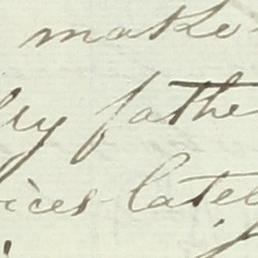 make
fathe
ices lately